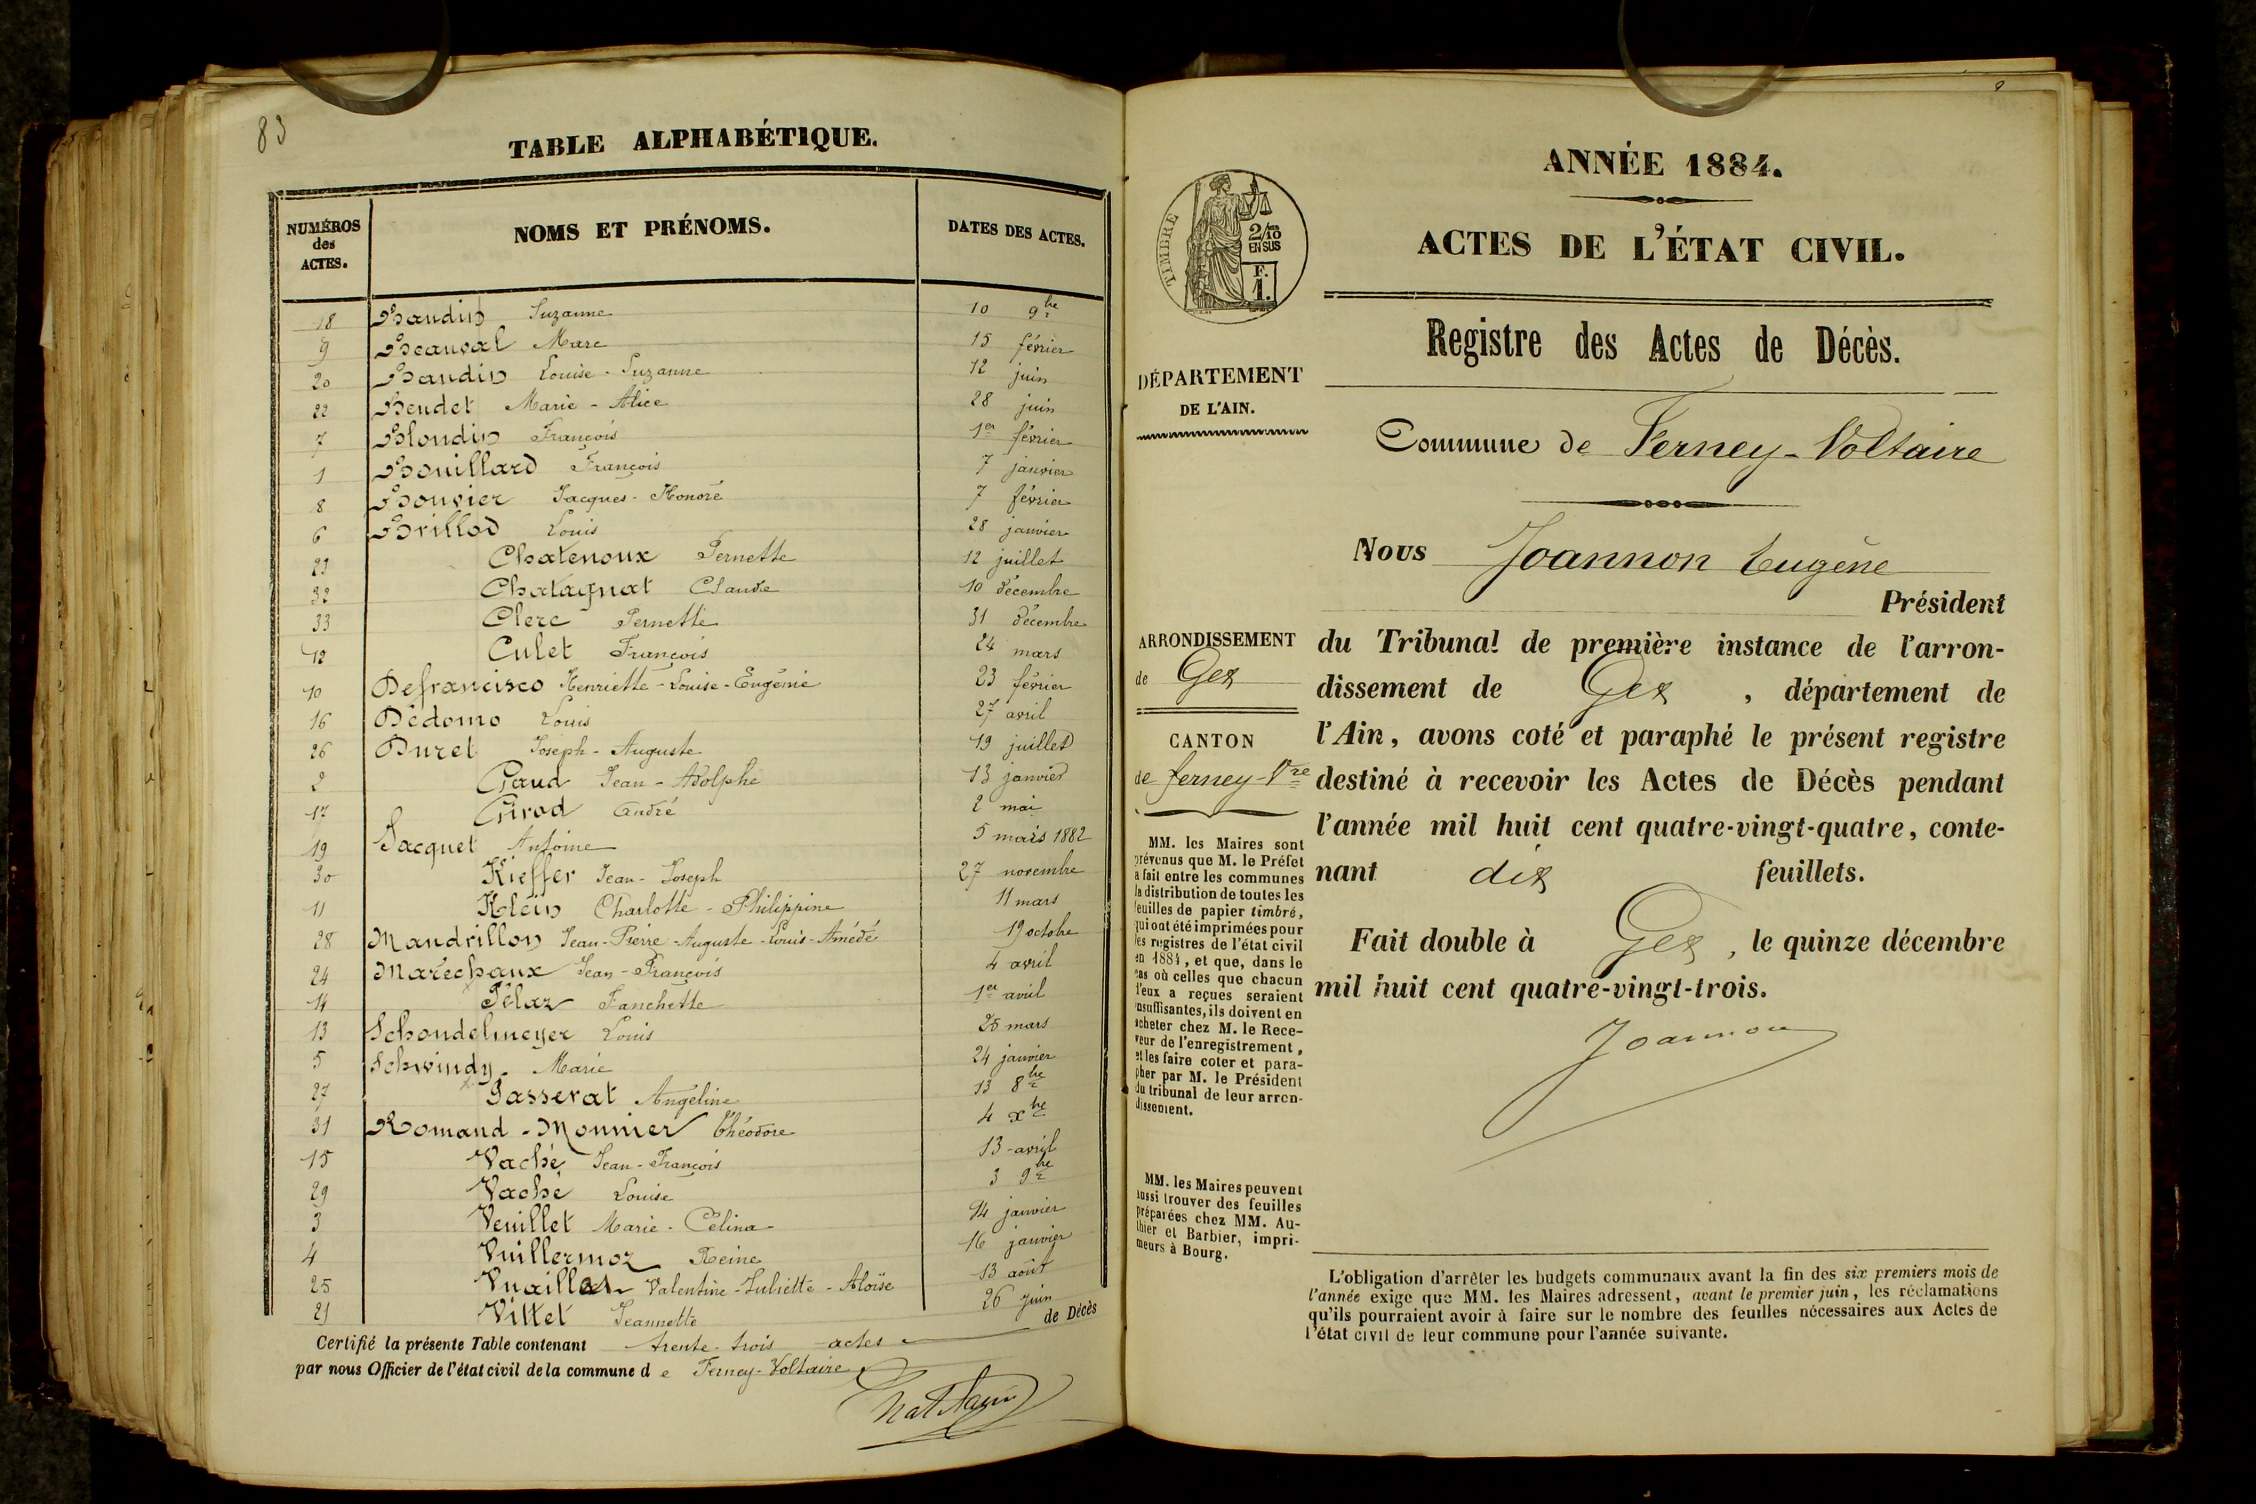 83
TABLE ALPHABÉTIQUE.
NUMÉROS des ACTES. NOMS ET PRÉNOMS. DATES DES ACTES.
18 Baudin Suzanne 10 9bre
9 Beauval Marc 15 février
20 Baudin Louise-Suzanne 12 juin
22 Bendet Marie-Alice 28 juin
7 Blondin François 1er février
1 Bouillard François 7 janvier
8 Bouvier Jacques-Honoré 7 février
6 Brillod Louis 28 janvier
23 Chatenoux Pernette 12 juillet
32 Chatagnat Claude 10 décembre
33 Clerc Pernette 31 décembre
12 Culet François 24 mars
10 Defrancisco Henriette-Louise-Eugénie 23 février
16 Dédomo Louis 27 avril
26 Duret Joseph-Auguste 19 juillet
2 Gaud Jean-Adolphe 13 janvier
17 Girod André 2 mai
19 Jacquet Antoine 5 mars 1882
30 Kieffer Jean-Joseph 27 novembre
11 Klein Charlotte-Philippine 11 mars
28 Mandrillon Jean-Pierre-Auguste-Louis-Amédé 19 octobre
24 Maréchaux Jean-François 4 avril
14 Pélaz Fanchette 1er avril
13 Schondelmeyer Louis 25 mars
5 Schwindy Marie 24 janvier
27 Passerat Angéline 13 8bre
31 Romand-Monnier Théodore 4 xbre
15 Vaché Jean-François 13 avril
29 Vaché Louise 3 9bre
3 Venillet Marie-Célina 14 janvier
4 Vuillermoz Reine 16 janvier
25 Vuaillat Valentine-Juliette-Aloïse 13 août
21 Vittet Jeannette 26 juin
de Décès
Certifié la présente Table contenant trente-trois actes
par nous Officier de l'état civil de la commune de Ferney-Voltaire
ANNÉE 1884.
ACTES DE L'ÉTAT CIVIL.
TIMBRE
2/10 EN SUS
F. 1.
Registre des Actes de Décès.
DÉPARTEMENT
DE L'AIN.
Commune de Ferney-Voltaire
Nous Joannon Eugène
Président
du Tribunal de première instance de l'arron-
dissement de Gex, département de
l'Ain, avons coté et paraphé le présent registre
destiné à recevoir les Actes de Décès pendant
l'année mil huit cent quatre-vingt-quatre, conte-
nant dix feuillets.
Fait double à Gex, le quinze décembre
mil huit cent quatre-vingt-trois.
Joannon
ARRONDISSEMENT
de Gex
CANTON
de ferney-Vre
MM. les Maires sont
prévenus que M. le Préfet
a fait entre les communes
la distribution de toutes les
feuilles de papier timbré,
qui ont été imprimées pour
les registres de l'état civil
en 1884, et que, dans le
cas où celles que chacun
d'eux a reçues seraient
insuffisantes, ils doivent en
acheter chez M. le Rece-
veur de l'enregistrement,
et les faire coter et para-
pher par M. le Président
du tribunal de leur arron-
dissement.
MM. les Maires peuvent
aussi trouver des feuilles
préparées chez MM. Au-
thier et Barbier, impri-
meurs à Bourg.
L'obligation d'arrêter les budgets communaux avant la fin des six premiers mois de
l'année exige que MM. les Maires adressent, avant le premier juin, les réclamations
qu'ils pourraient avoir à faire sur le nombre des feuilles nécessaires aux Actes de
l'état civil de leur commune pour l'année suivante.